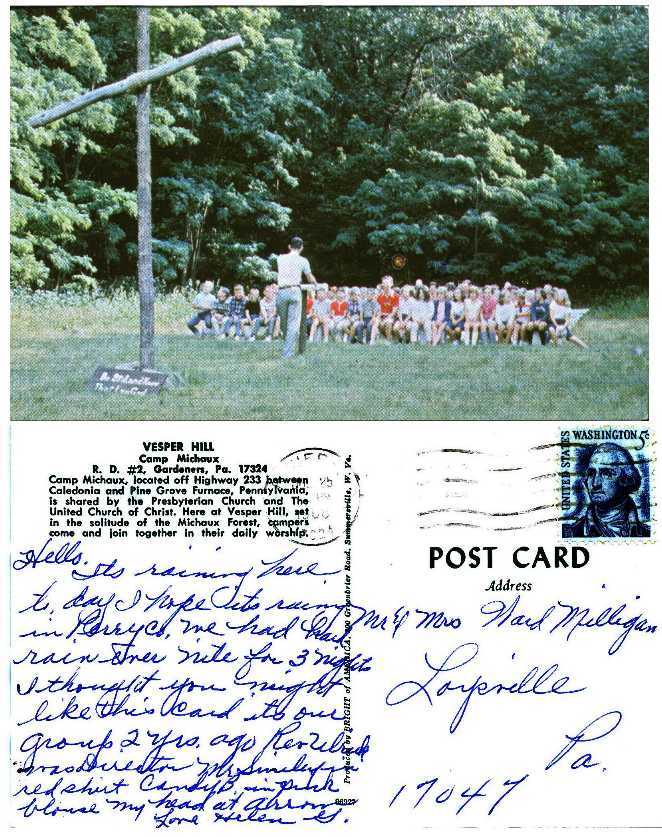 Be Still and Know
That I am God
VESPER HILL
Camp Michaux
R. D. #2, Gardeners, Pa. 17324
Camp Michaux, located off Highway 233 between
Caledonia and Pine Grove Furnace, Pennsylvania,
is shared by the Presbyterian Church and The
United Church of Christ. Here at Vesper Hill, set
in the solitude of the Michaux Forest, campers
come and join together in their daily worship.
Hello.
Its raining here
to, day I hope its rainy
in Perry co, we had had
rain over nite for 3 nights
I thought you might
like this card its our
group 2 yrs. ago Rev
was Director Mr Smiley in
red shirt Candy B. in pink
blouse my head at arrow
Love Helen G.
Produced by BRIGHT of AMERICA, Greenbrier Road, Summersville, W. Va.
WASHINGTON 5¢
UNITED STATES
POST CARD
Address
Mr & Mrs Ward Milligan
Loysville
Pa.
17047